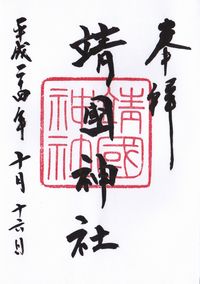 奉拝
靖國神社
靖國神社
平成二十四年十月十六日